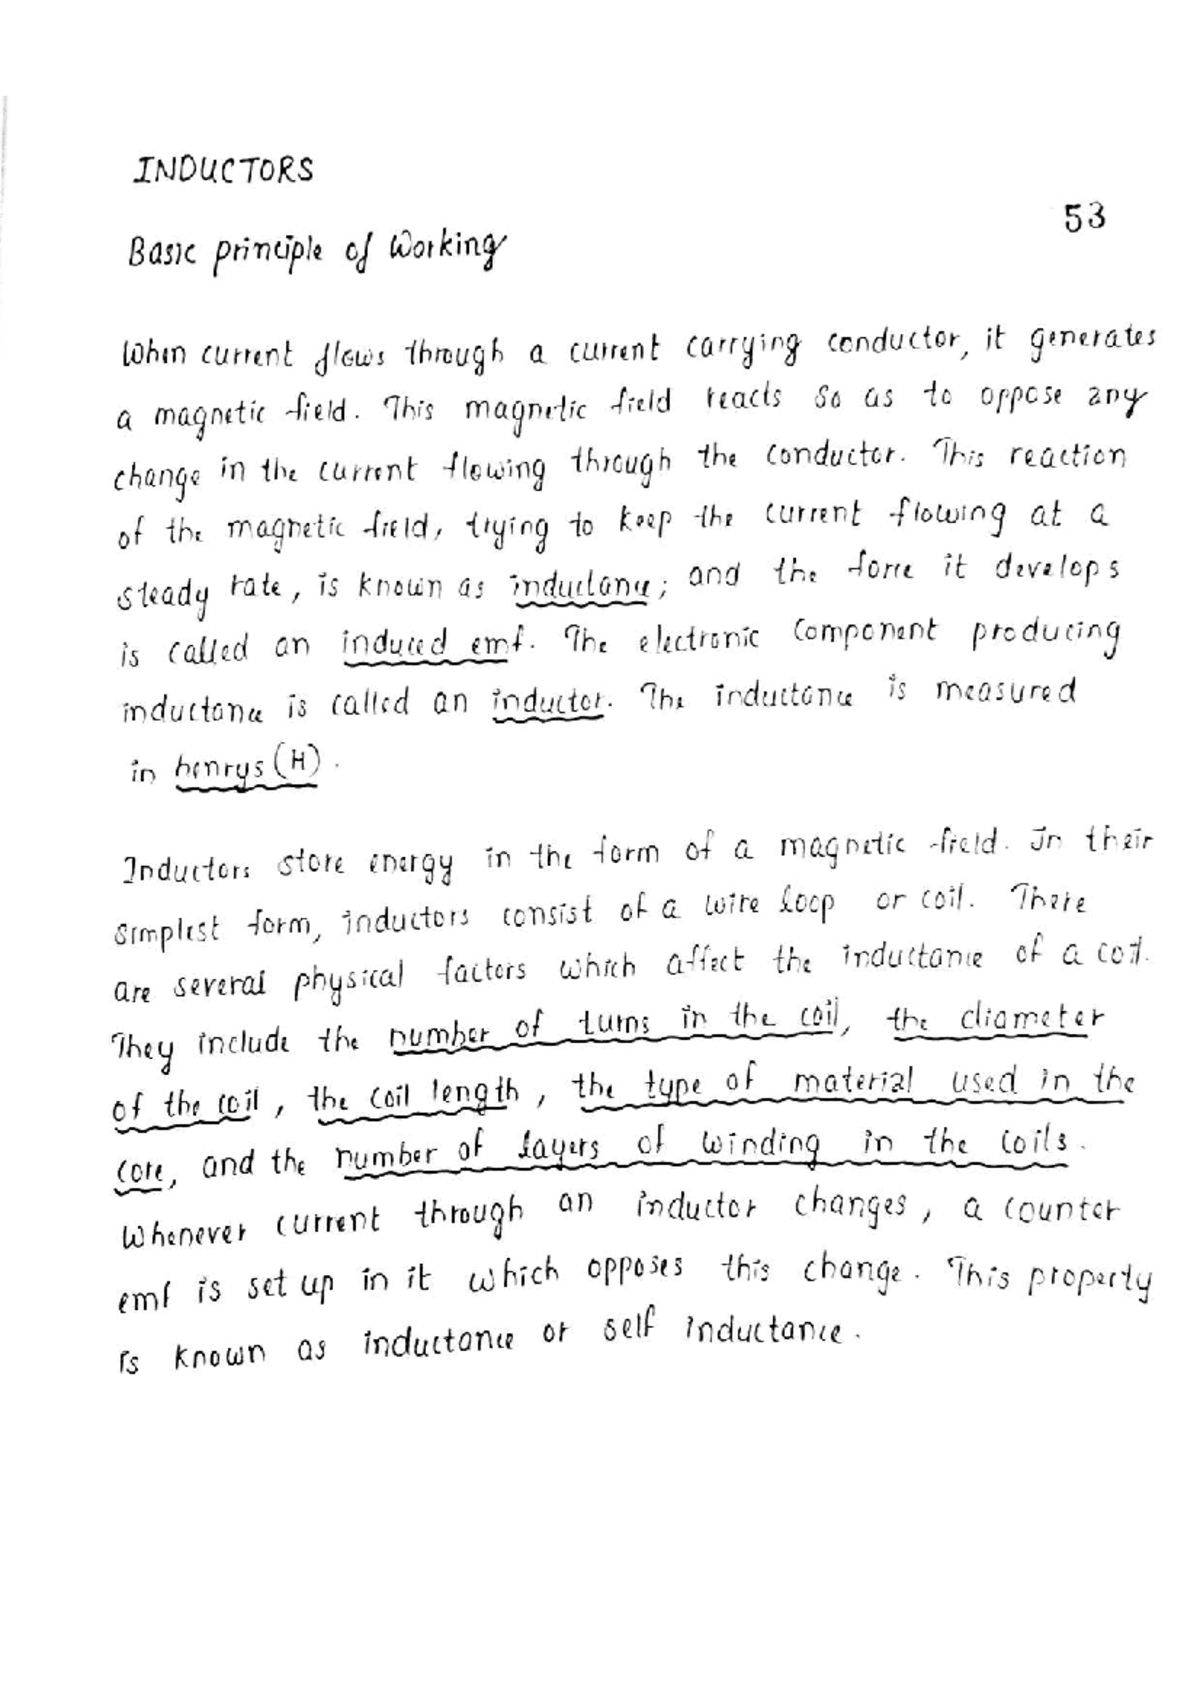 INDUCTORS
53
Basic principle of Working
When current flows through a current carrying conductor, it generates
a magnetic field. This magnetic field reacts so as to oppose any
change in the current flowing through the conductor. This reaction
of the magnetic field, trying to keep the current flowing at a
steady rate, is known as inductance; and the force it develops
is called an induced emf. The electronic component producing
inductance is called an inductor. The inductance is measured
in henrys (H).
Inductors store energy in the form of a magnetic field. In their
simplest form, inductors consist of a wire loop or coil. There
are several physical factors which affect the inductance of a coil.
They include the number of turns in the coil, the diameter
of the coil, the coil length, the type of material used in the
core, and the number of layers of winding in the coils.
Whenever current through an inductor changes, a counter
emf is set up in it which opposes this change. This property
is known as inductance or self inductance.